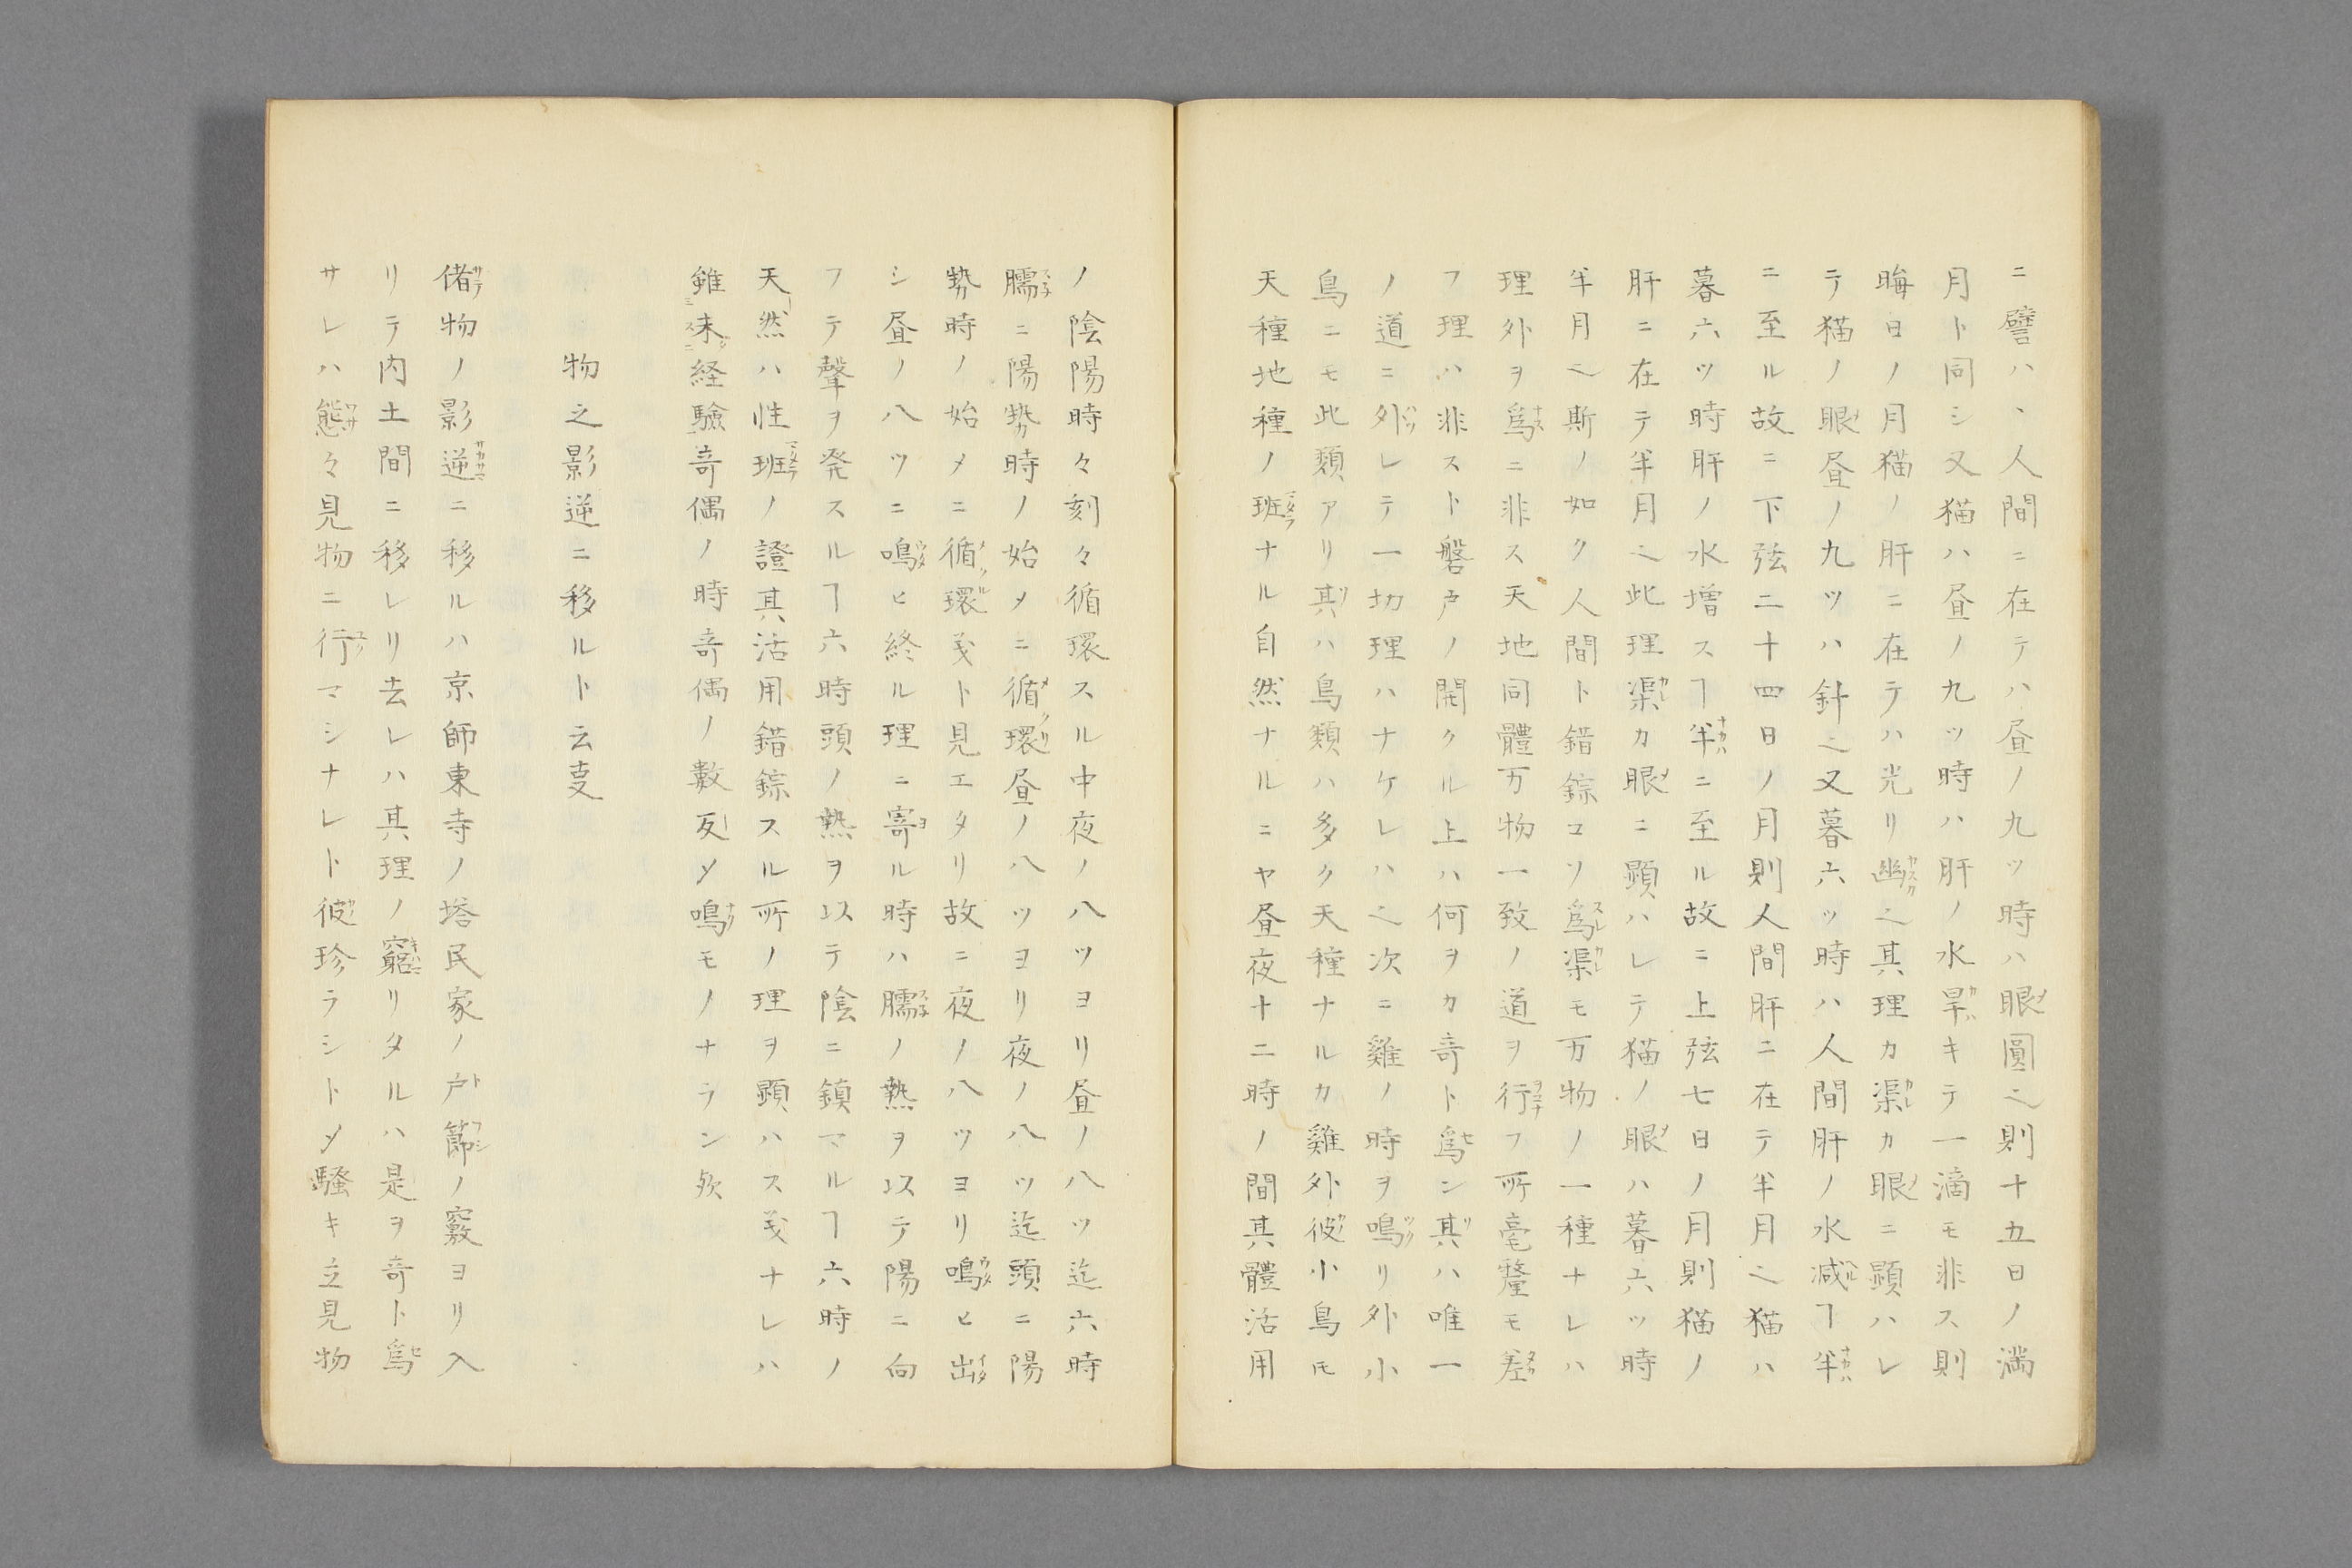 ニ譬ハヽ人間ニ在テハ昼ノ九ツ時ハ眼圓之則十五日ノ満
月ト同シ又猫ハ昼ノ九ツ時ハ肝ノ水旱キテ一滴モ非ス則
晦日ノ月猫ノ肝ニ在テハ光リ幽之其理カ渠カ眼ニ顕ハレ
テ猫ノ眼昼ノ九ツハ針之又暮六ツ時ハ人間肝ノ水減ヿ半
ニ至ル故ニ下弦二十四日ノ月則人間肝ニ在テ半月之猫ハ
暮六ツ時肝ノ水増スヿ半ニ至ル故ニ上弦七日ノ月則猫ノ
肝ニ在テ半月之此理渠カ眼ニ顕ハレテ猫ノ眼ハ暮六ツ時
半月之斯ノ如ク人間ト錯綜コソ為渠モ万物ノ一種ナレハ
理外ヲ為ニ非ス天地同體万物一致ノ道ヲ行フ所毫釐モ差
フ理ハ非スト磐戸ノ開クル上ハ何ヲカ奇ト為ン其ハ唯一
ノ道ニ外レテ一切理ハナケレハ之次ニ雞ノ時ヲ鳴リ外小
鳥ニモ此類アリ其ハ鳥類ハ多ク天種ナルカ雞外彼小鳥モ
天種地種ノ班ナル自然ナルニヤ昼夜十二時ノ間其體活用
ノ陰陽時々刻々循環スル中夜ノ八ツヨリ昼ノ八ツ迄六時
臑ニ陽勢時ノ始メニ循環昼ノ八ツヨリ夜ノ八ツ迄頭ニ陽
勢時ノ始メニ循環義ト見エタリ故ニ夜ノ八ツヨリ鳴ヒ出
シ昼ノ八ツニ鳴ヒ終ル理ニ寄ル時ハ臑ノ熱ヲ以テ陽ニ向
フテ聲ヲ発スルヿ六時頭ノ熱ヲ以テ陰ニ鎮マルヿ六時ノ
天然ハ性班ノ證其活用錯綜スル所ノ理ヲ顕ハス義ナレハ
雖未経驗奇偶ノ時奇偶ノ數反〆鳴モノナラン欤
物之影逆ニ移ルト云叓
偖物ノ影逆ニ移ルハ京師東寺ノ塔民家ノ戸節ノ竅ヨリ入
リテ内土間ニ移レリ去レハ其理ノ窮リタルハ是ヲ奇ト為
サレハ態々見物ニ行マシナレト彼珍ラシト〆騒キ立見物